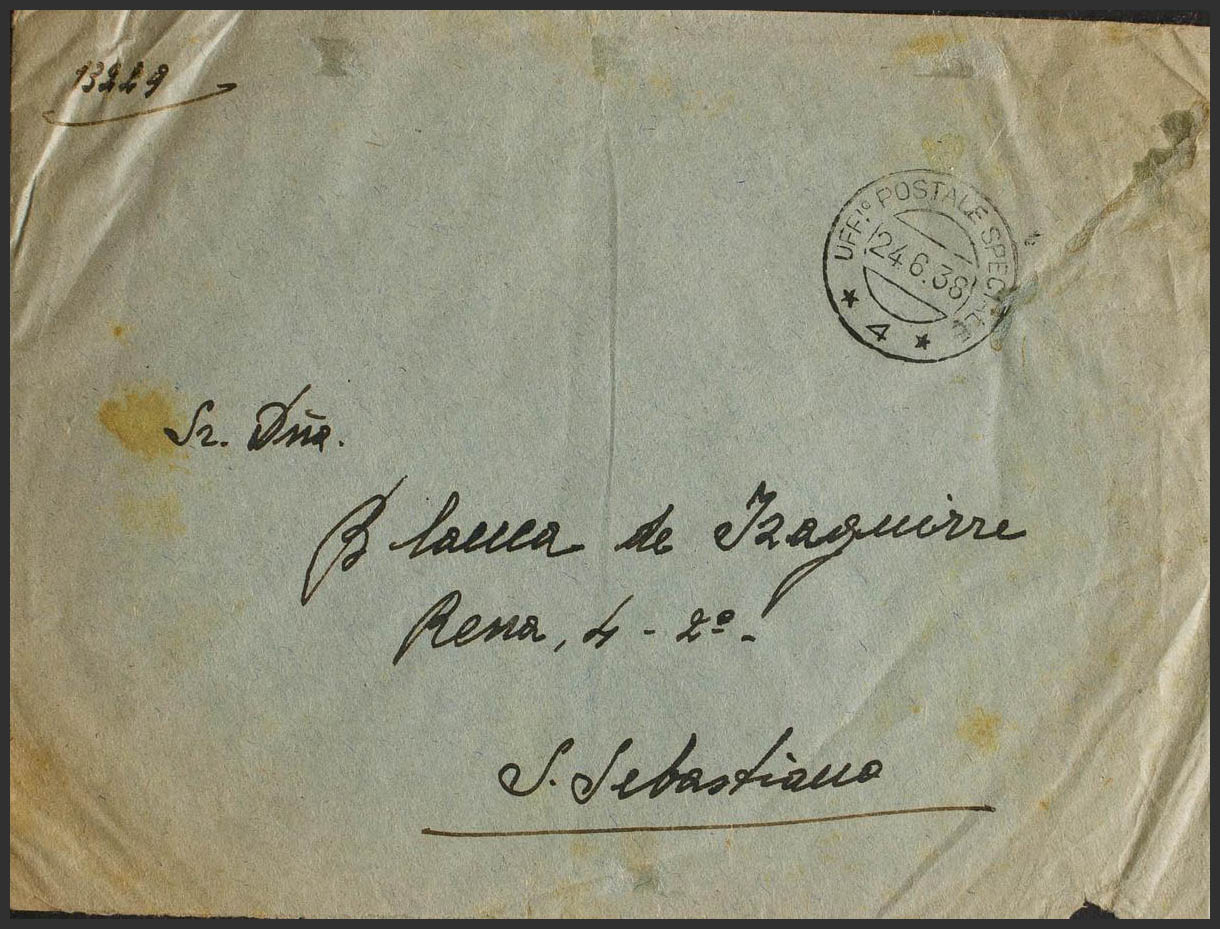 13229
UFFIº POSTALE SPECIALE
24.6.38
★ 4 ★
Sr. Dña.
Blanca de Izaguirre
Rena, 4 - 2º.
S. Sebastiano